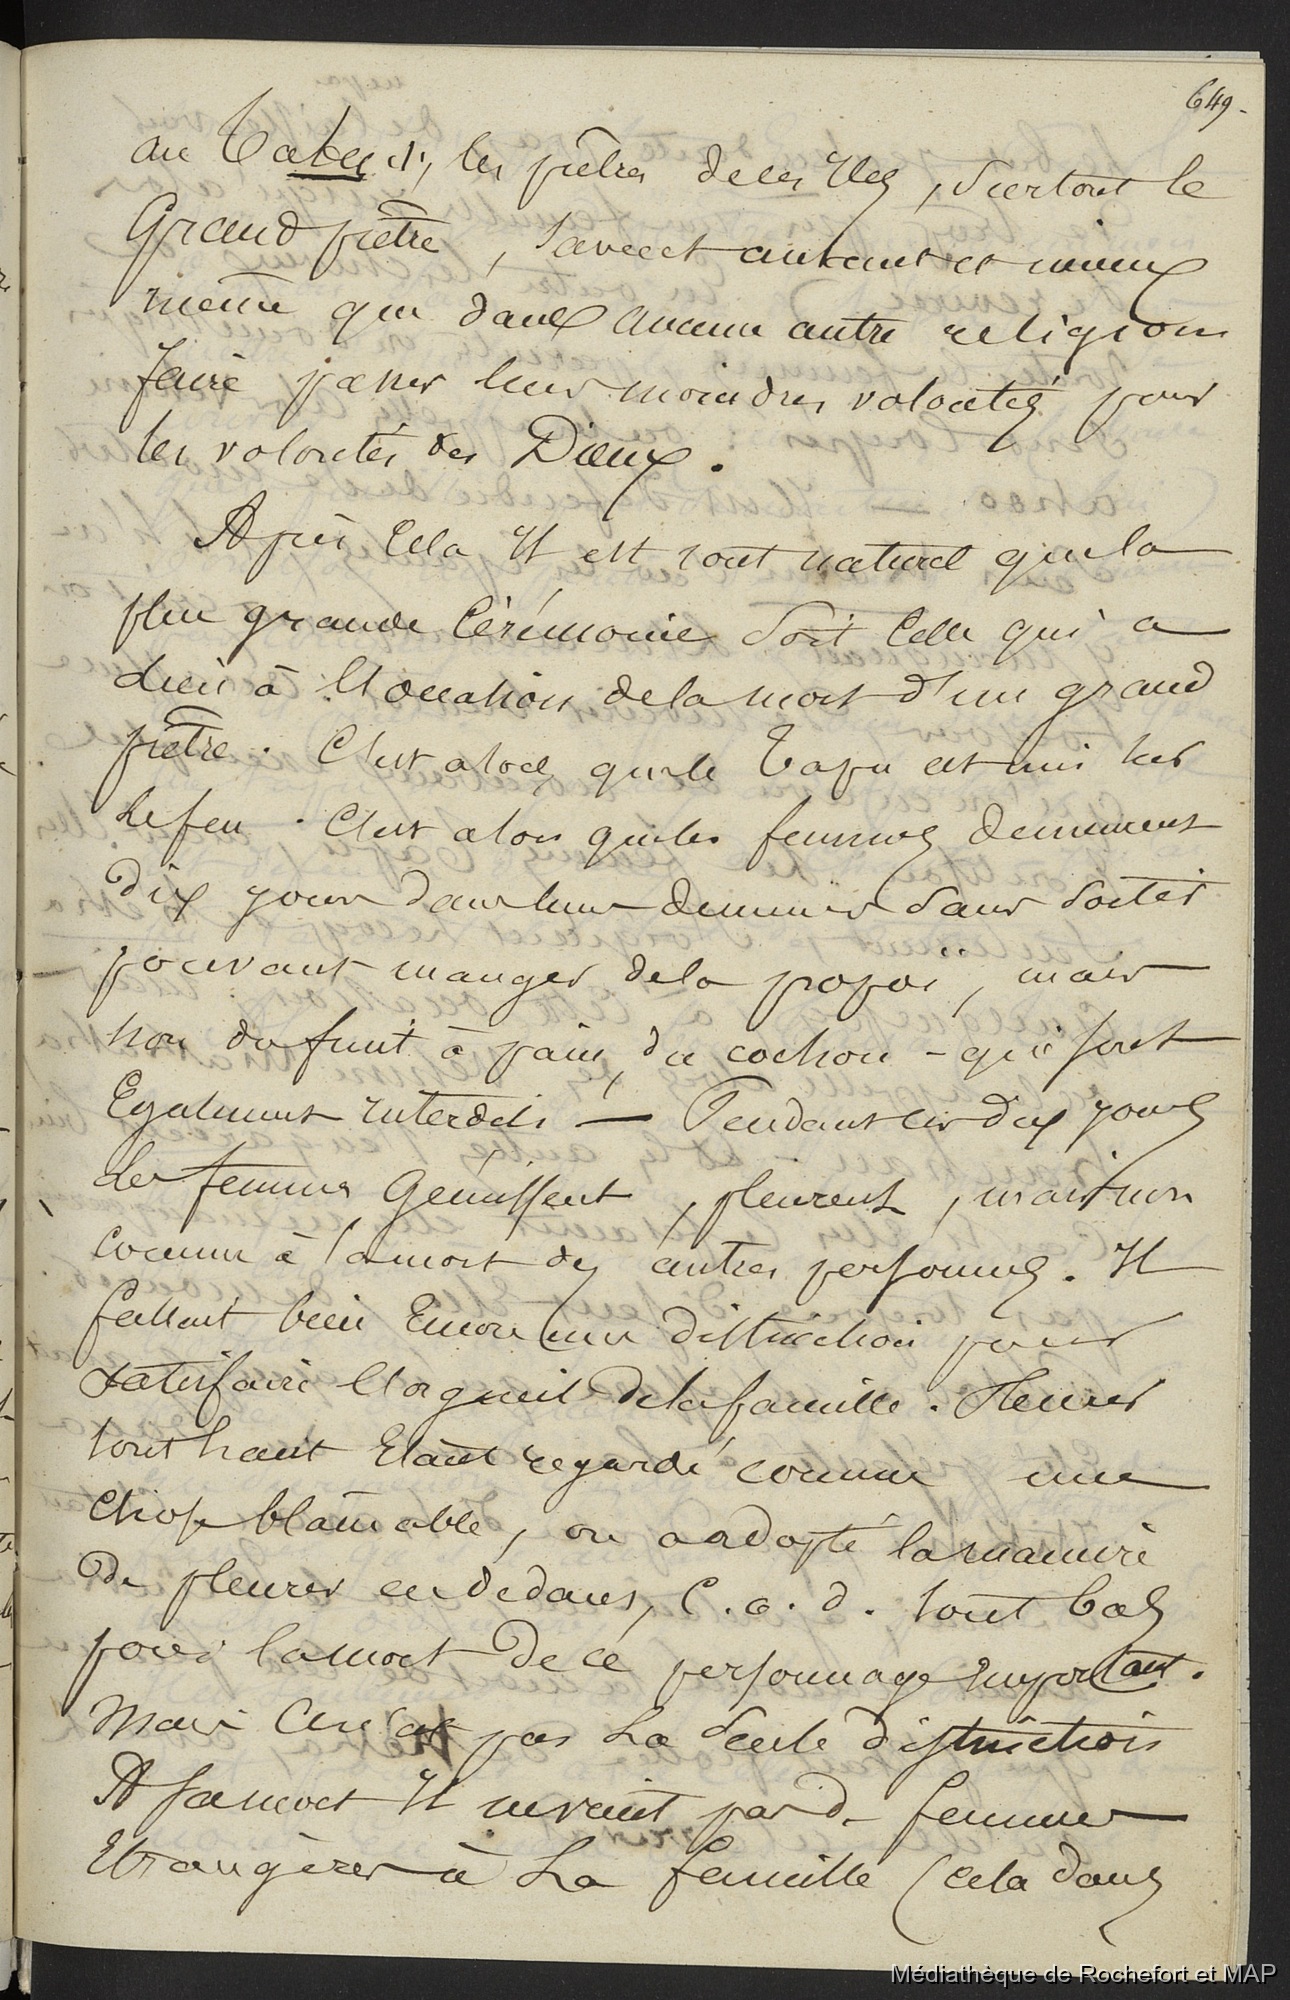 649.
au les prêtres de ces Iles, surtout le
Grand prêtre, savent autant et mieux
même que dans aucune autre religion
faire passer leurs moindres volontés pour
les volontés des Dieux.
Après cela Il est tout naturel que la
plus grande Cérémonie soit celle qui a
lieu à l'occasion de la mort d'un grand
prêtre. C'est alors que le Tapu est mis sur
le feu. C'est alors que les femmes demeurent
dix jours dans leur demeure sans sortir
pouvant manger de la popoï, mais
non du fruit à pain, du cochon - qui sont
Egalement interdits — Pendant ces dix jours
les femmes Gémissent, pleurent, mais non
comme à la mort des autres personnes. Il
fallait bien Encore une distinction pour
satisfaire l'orgueil de la famille. Pleurer
tout haut Etant regardé comme une
chose blamable, on a adopté la manière
De pleurer en dedans, C.a.d. tout bas
pour la mort de ce personnage important.
Mais Ce n'est pas la seule distinction
A sa mort Il ne vient pas de femmes
Etrangères à la famille (cela dans
Médiathèque de Rochefort et MAP